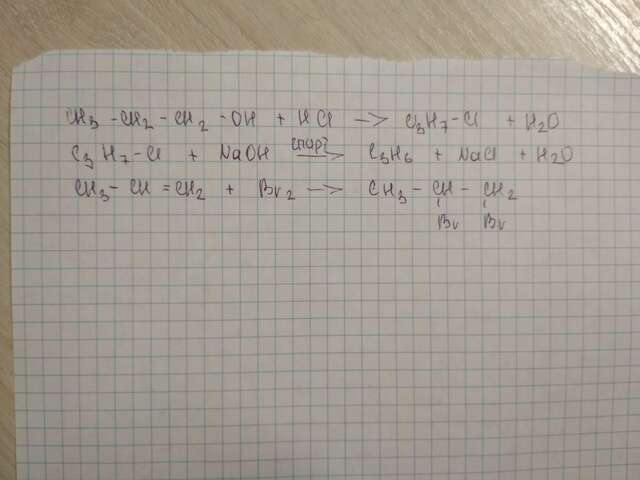 CH3 - CH2 - CH2 - OH + HCl -> C3H7 - Cl + H2O
C3H7 - Cl + NaOH спирт -> C3H6 + NaCl + H2O
CH3 - CH = CH2 + Br2 -> CH3 - CH - CH2
Br Br